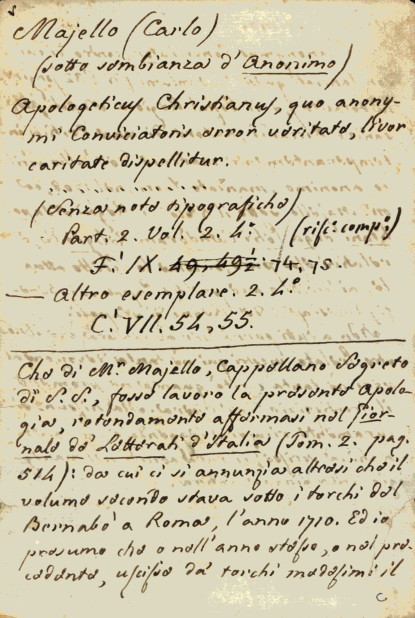 Majello (Carlo)
(sotto sembianza d'Anonimo)
Apologeticus Christianus, quo anony-
mi Conviciatoris error veritate, livor
caritate dispellitur.
(Senza note tipografiche)
Part. 2. Vol. 2. 4.º (rifc. comp.)
F. IX. 49, 49½ 74, 75.
— Altro esemplare. 2. 4.º
C. VII. 54, 55.
Che di M.r Majello, Cappellano Segreto
di S. S., fosse lavoro la presente Apolo-
gia, rotondamente affermasi nel Gior-
nale de' Letterati d'Italia (Tom. 2. pag.
514): da cui ci si annunzia altresì che il
volume secondo stava sotto i torchi del
Bernabò a Roma, l'anno 1710. Ed io
presumo che o nell'anno stesso, o nel pre-
cedente, uscisse da' torchi medesimi il